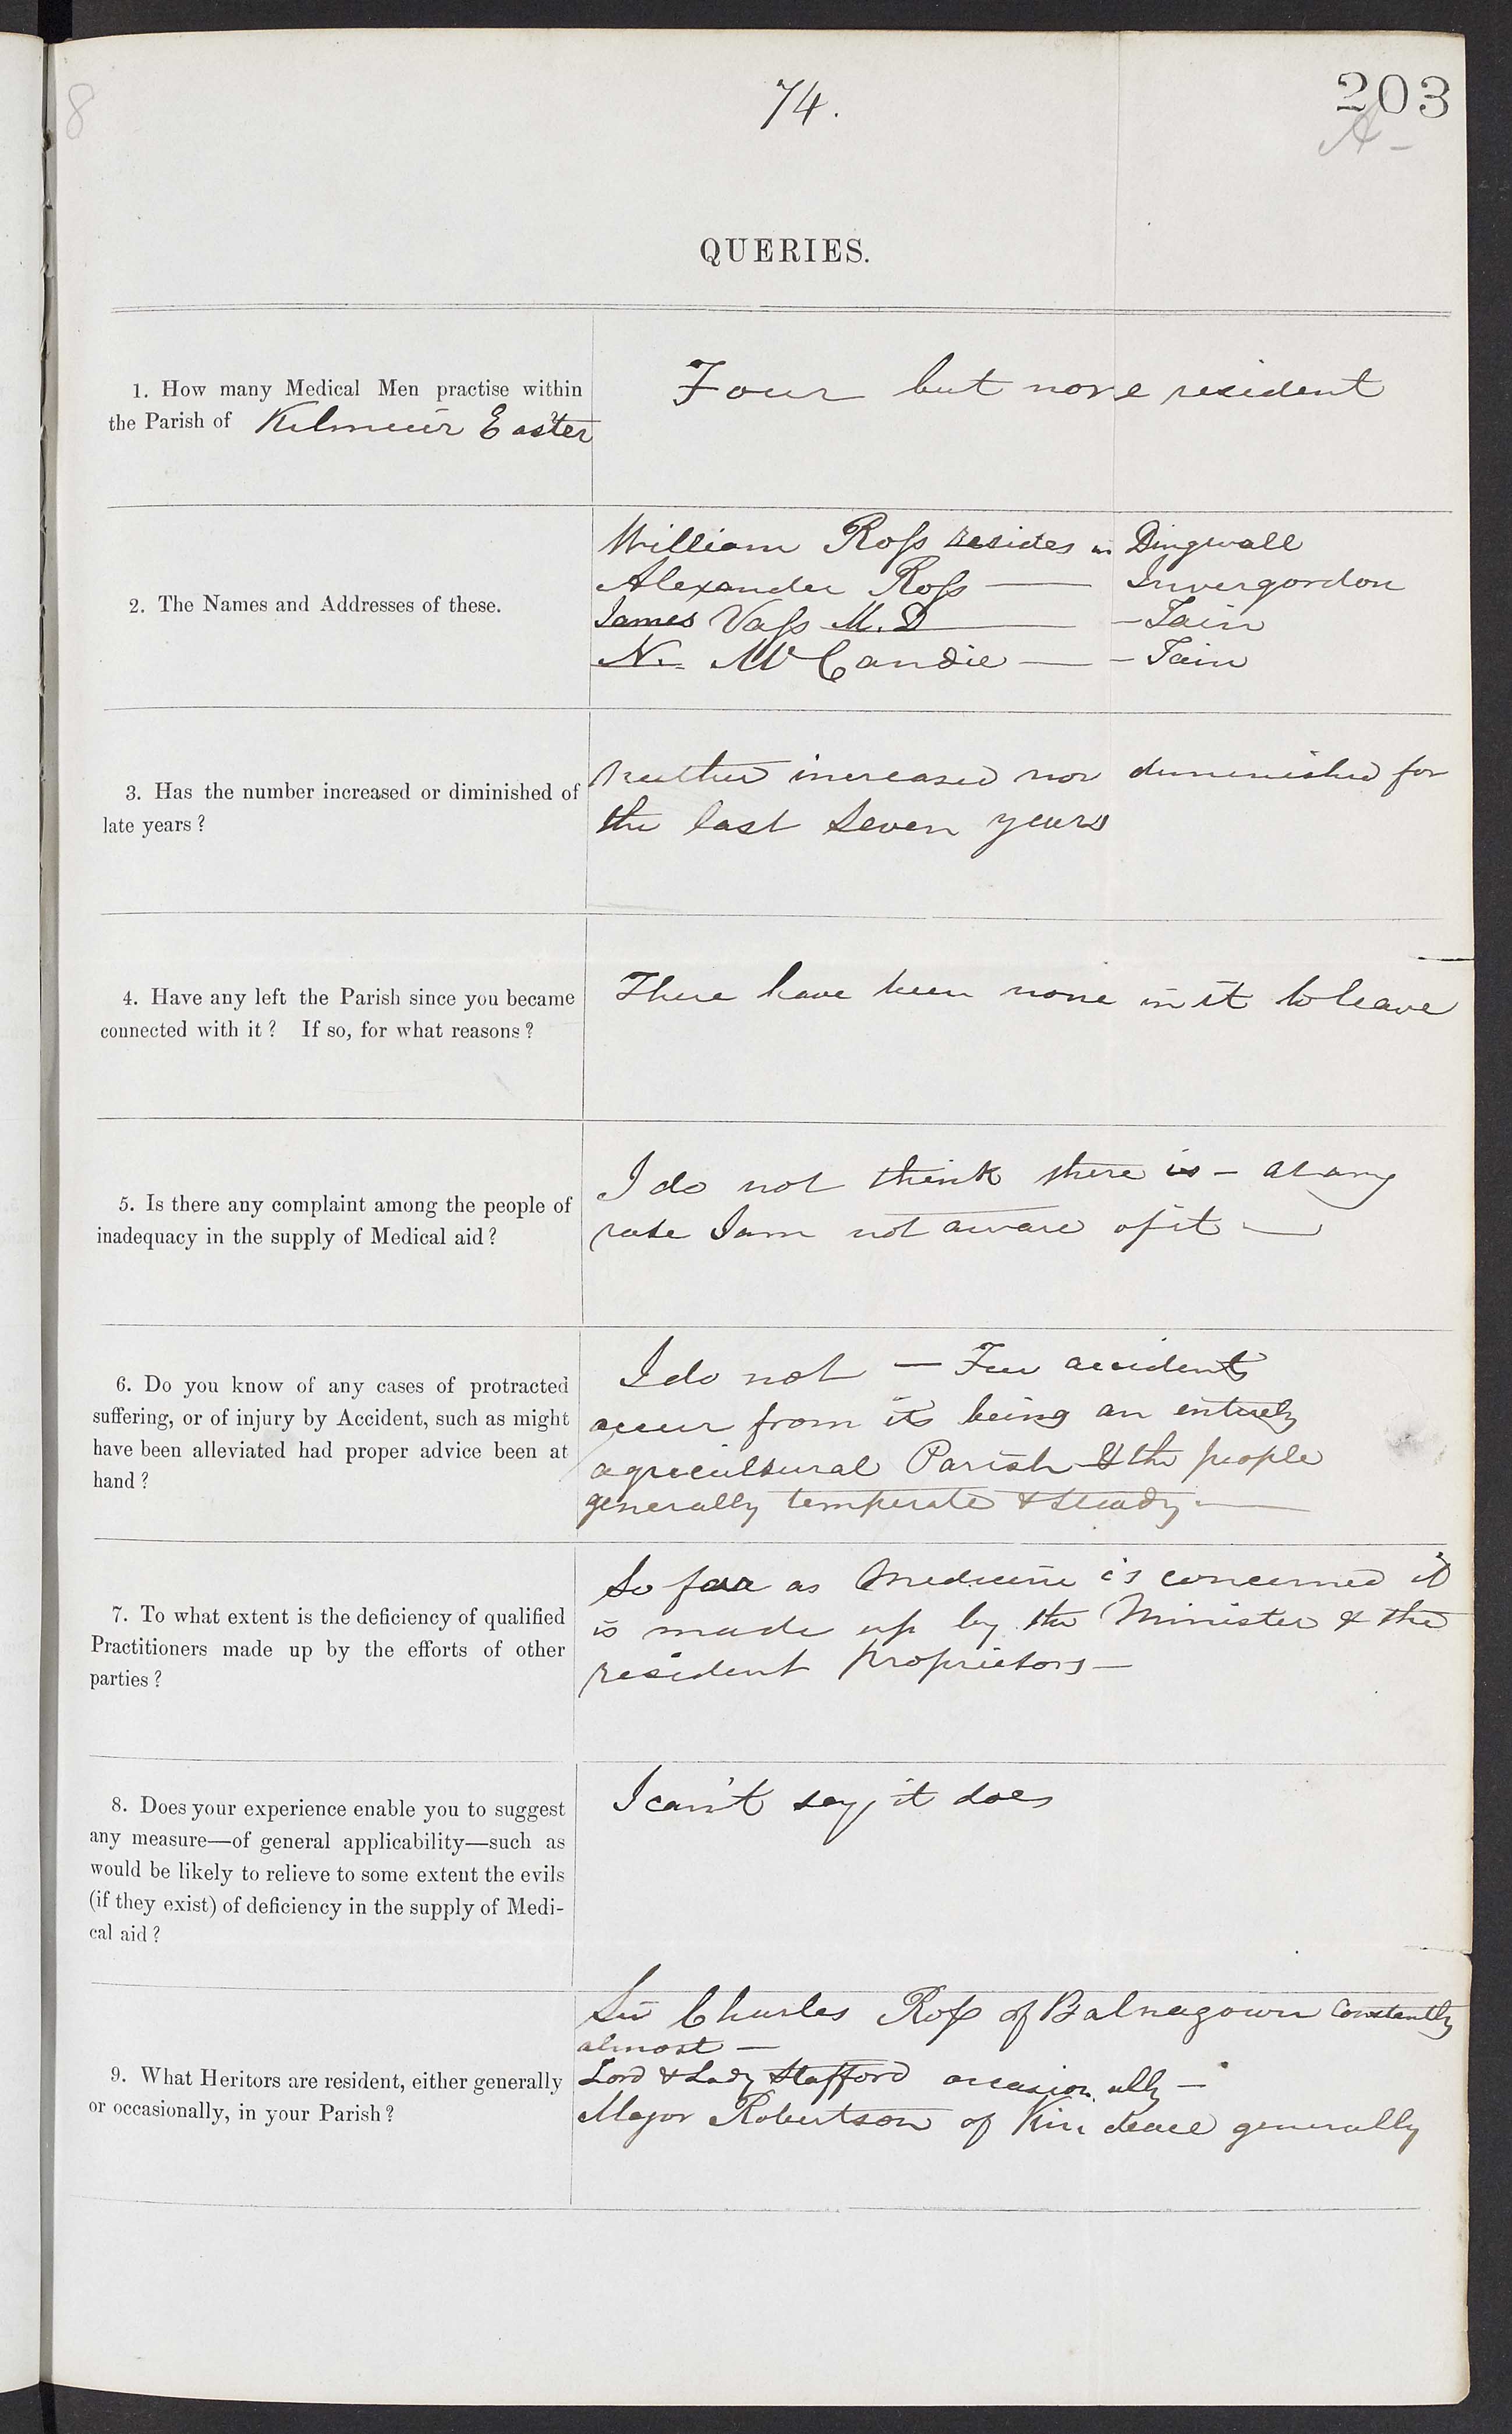 8
74.
203
A -
QUERIES.
1. How many Medical Men practise within
the Parish of Kilmuir Easter
Four but none resident
2. The Names and Addresses of these.
William Ross resides in Dingwall
Alexander Ross — Invergordon
James Vass M.D — Tain
N. McCandie — Tain
3. Has the number increased or diminished of
late years ?
Neither increased nor diminished for
the last Seven years
4. Have any left the Parish since you became
connected with it ? If so, for what reasons ?
There have been none in it to leave
5. Is there any complaint among the people of
inadequacy in the supply of Medical aid ?
I do not think there is – at any
rate I am not aware of it —
6. Do you know of any cases of protracted
suffering, or of injury by Accident, such as might
have been alleviated had proper advice been at
hand ?
I do not — Few accidents
occur from its being an entirely
agricultural Parish & the people
generally temperate & steady —
7. To what extent is the deficiency of qualified
Practitioners made up by the efforts of other
parties ?
So far as Medicine is concerned it
is made up by the Minister & the
resident proprietors —
8. Does your experience enable you to suggest
any measure—of general applicability—such as
would be likely to relieve to some extent the evils
(if they exist) of deficiency in the supply of Medi-
cal aid ?
I can't say it does
9. What Heritors are resident, either generally
or occasionally, in your Parish ?
Sir Charles Ross of Balnagown Constantly
almost —
Lord & Lady Stafford occasionally —
Major Robertson of Kindeace generally